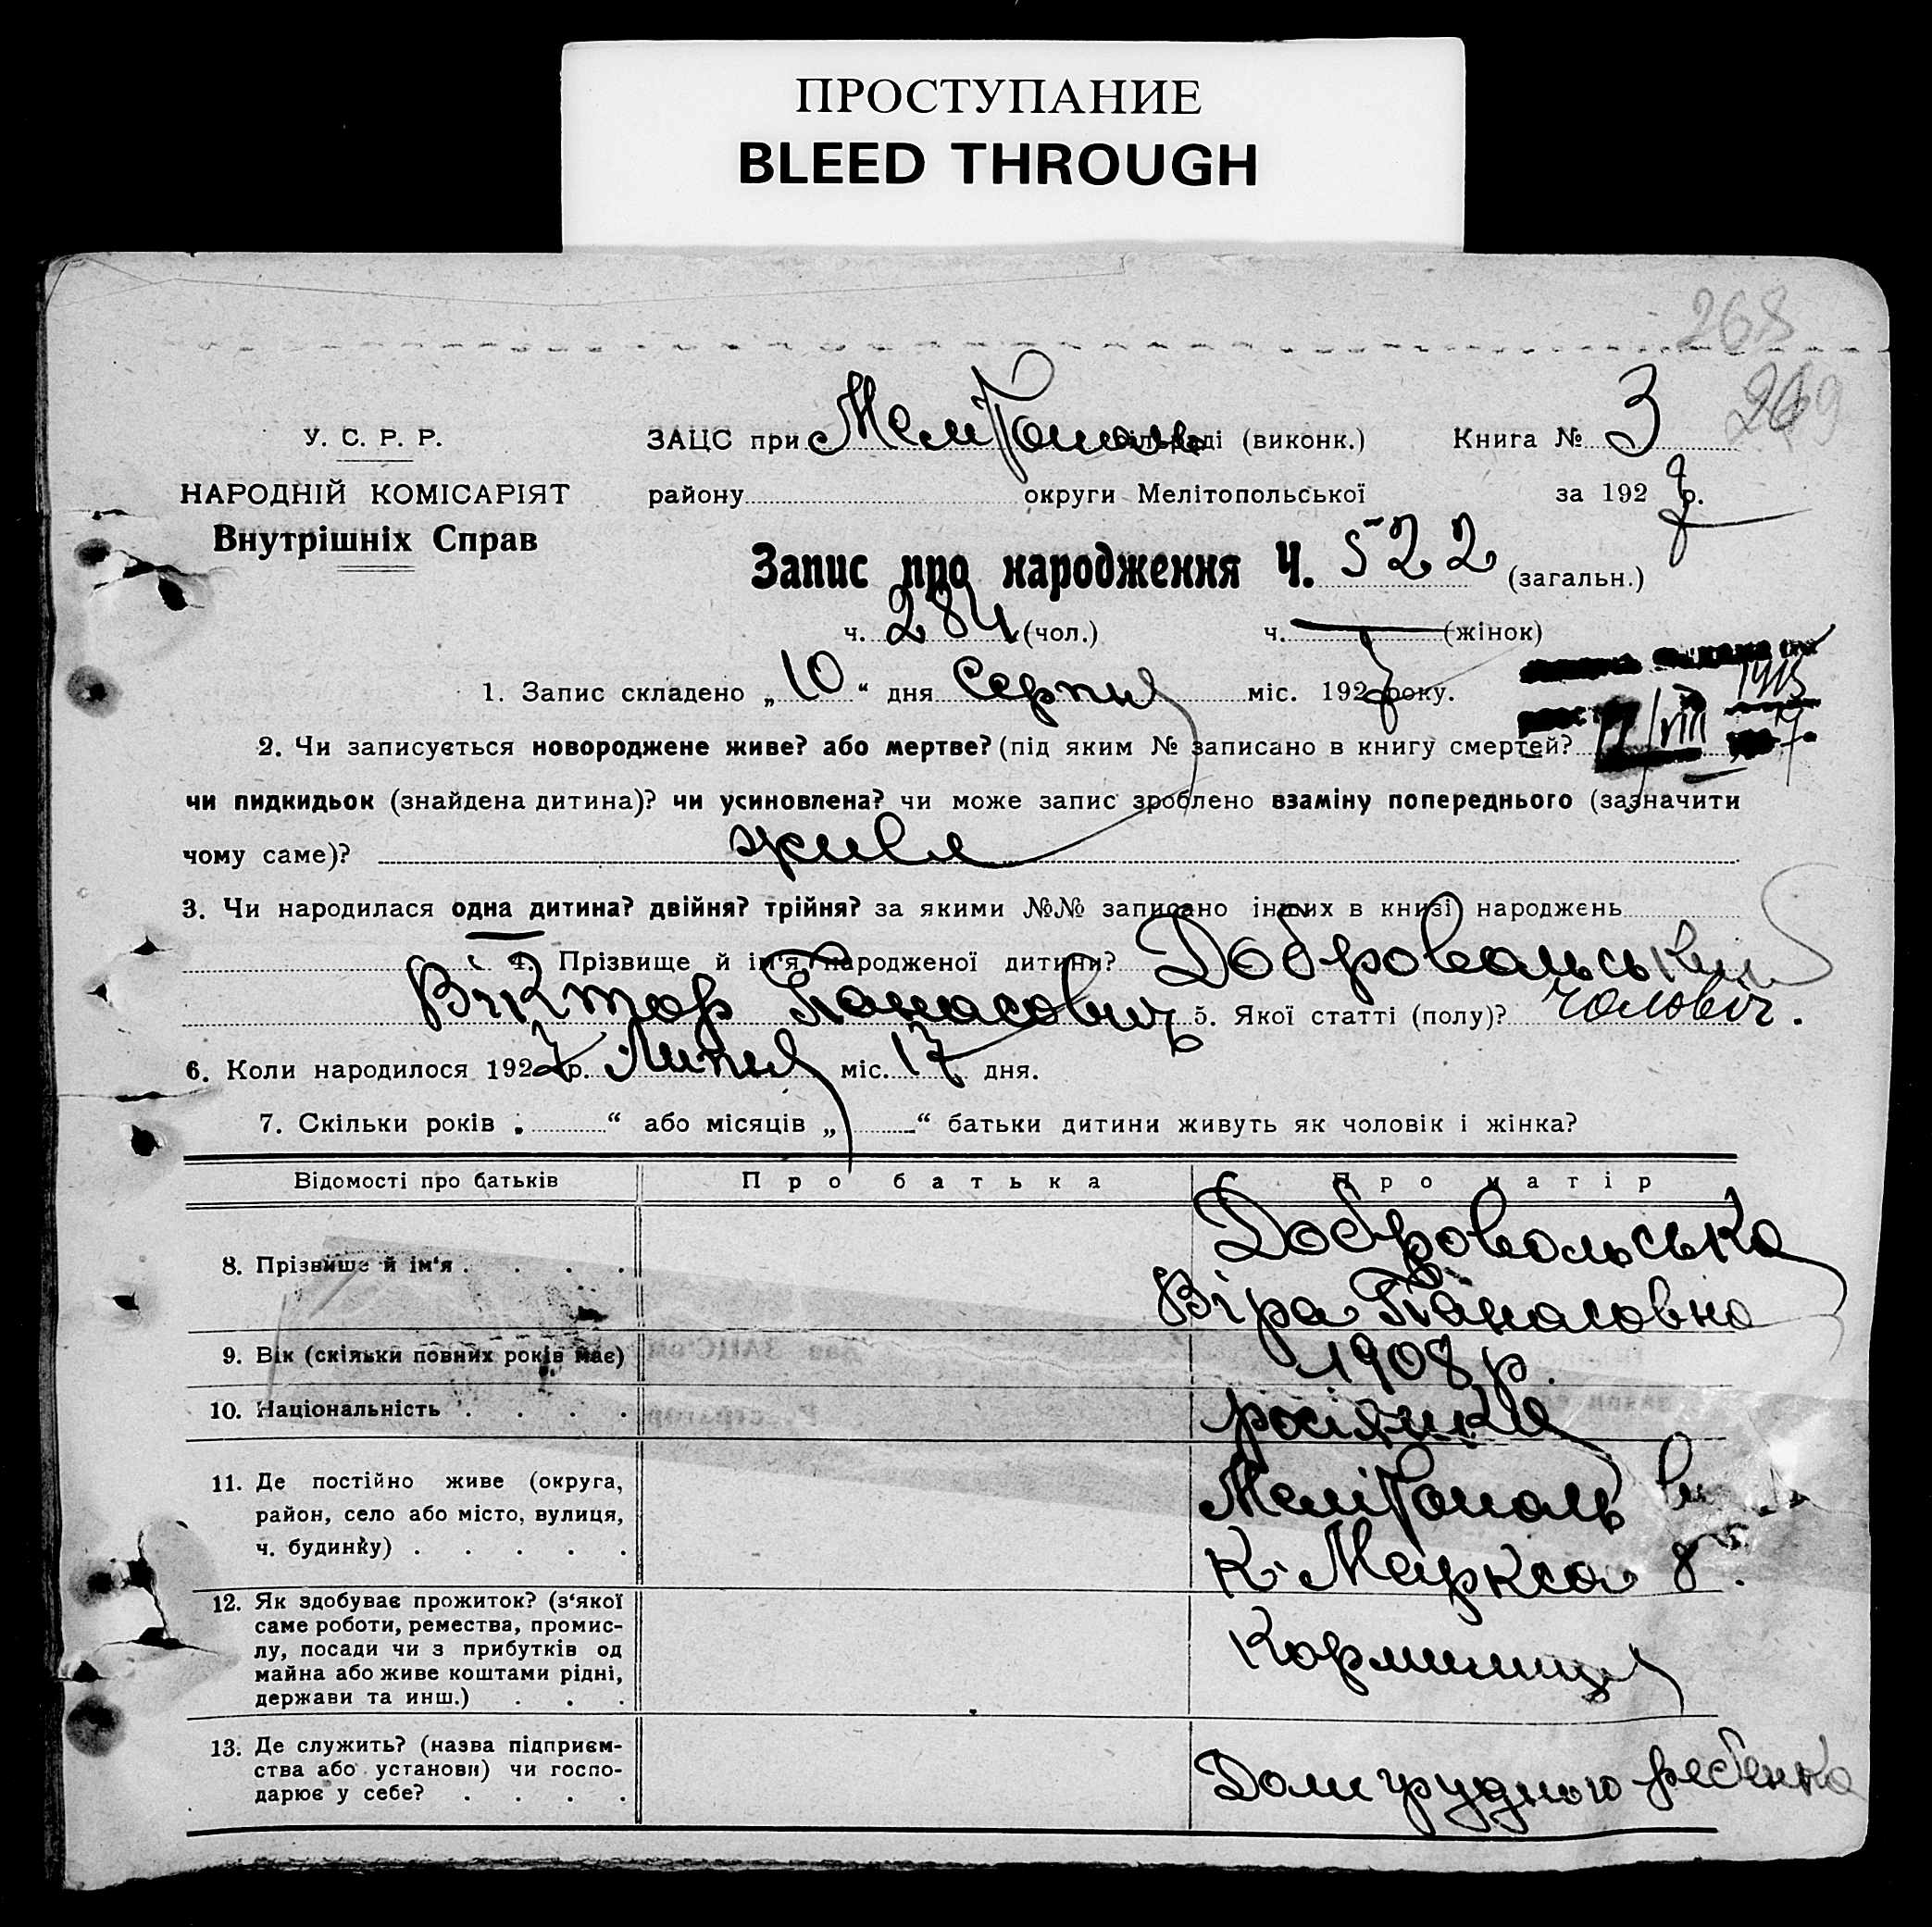 ПРОСТУПАНИЕ
BLEED THROUGH
268
269
У. С. Р. Р.
НАРОДНІЙ КОМІСАРІЯТ
Внутрішніх Справ
ЗАЦС при Мелітополь сільраді (виконк.) Книга № 3
району округи Мелітопольської за 1927 р.
Запис про народження Ч. 522 (загальн.)
ч. 284 (чол.) ч. — (жінок)
1. Запис складено „ 10 “ дня Серпня міс. 1927 року.
1915
17/VIII
2. Чи записується новороджене живе? або мертве? (під яким № записано в книгу смертей?
чи пидкидьок (знайдена дитина)? чи усиновлена? чи може запис зроблено взаміну попереднього (зазначити
чому саме)? живе
3. Чи народилася одна дитина? двійня? трійня? за якими №№ записано інших в книзі народжень
4. Прізвище й ім'я народженої дитини? Добровольський
Віктор Панасович 5. Якої статті (полу)? Чоловіч.
6. Коли народилося 1927 р. Липня міс. 17 дня.
7. Скільки років „ “ або місяців „ “ батьки дитини живуть як чоловік і жінка?
Відомості про батьків Про батька Про матір
8. Прізвище й ім'я . . . . Добровольська
Віра Панасовна
9. Вік (скільки повних років має) 1908 р.
10. Національність . . . . росіянка
11. Де постійно живе (округа, Мелітополь
район, село або місто, вулиця,
ч. будинку) . . . . . К. Маркса 8.
12. Як здобуває прожиток? (з‘якої
саме роботи, ремества, промис-
лу, посади чи з прибутків од Кормилиця
майна або живе коштами рідні,
держави та инш.) . . .
13. Де служить? (назва підприєм-
ства або установи) чи госпо- Дом грудного ребенка
дарює у себе? . . . .